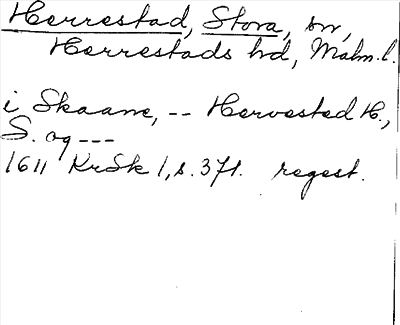 Herrestad, Stora, sn,
Herrestads hd, Malm.l.
i Skaane, -- Herrested H.,
S. og ---
1611 KrSk 1, s. 371. regest.